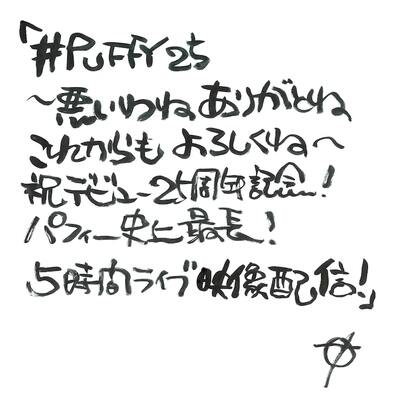 「#PUFFY25
～悪いわね ありがとね
これからも よろしくね～
祝デビュー25周年記念!
パフィー史上最長!
5時間ライブ映像配信!」